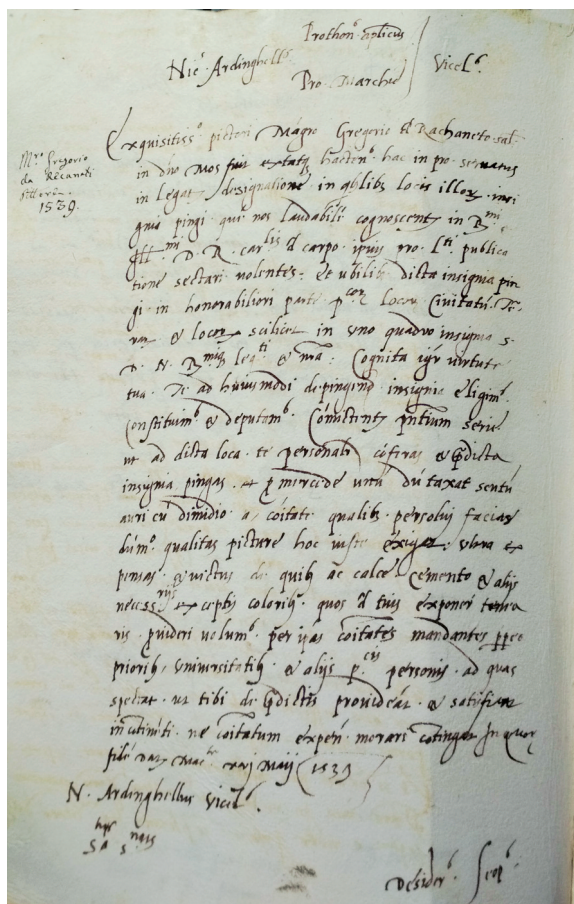 Prothon.s aplicus
Nic.s Ardinghell.s Vicel.s
Pro. Marchie
M.ro Gregorio
da Recanati
pittore.
1539.
Exquisitiss.o pictori Mag.ro Gregorio d Rachaneto sal.
in dño Mos fuit hacten.s hac in pro. seruatus
in legat. designatione in qblib; locis illor. insi
gnia pingi qui nos laudabili cognoscent in R.mi
Ill.mi D. R. car.lis d carpo ipius pro. L.ti publica
tione sectari volentes. et vbilib; dicta insignia pin
gi in honorabiliori parte locor. Ciuitatu. Te.
rar. & locor. scilicet in vno quadro insignia s.
D. N. R.mi leg.ti & nra: Cognita igr virtute
tua. Te ad huiusmodi depingend. insignia eligim.s
Constituim.s & deputam.s Comittent. pñtium serie
ut ad dicta loca. te personalr coferas & pdicta
insignia pingas. et p mercede unu du taxat scutu
auri cu dimidio a coitate qualib; persolui facias
dum.o qualitas picture hoc iuste exigat. vltra ex
pensas. & victus de quib; ac calce cemento & alijs
necess.rijs exceptis colorib; quos d tuis exponere
prouideri uolum.s per ipas coitates mandantes ppea
priorib; vniuersitatib; & alijs p.cis personis. ad quas
spectat. ut tibi de pdictis prouideat. & satisfiat
incotineti. ne coitatum expen. morari cotingat In quor.
fide Dat. Mac.te Maij 1539
N. Ardinghellus Vicel.s
Desider.s scop.s